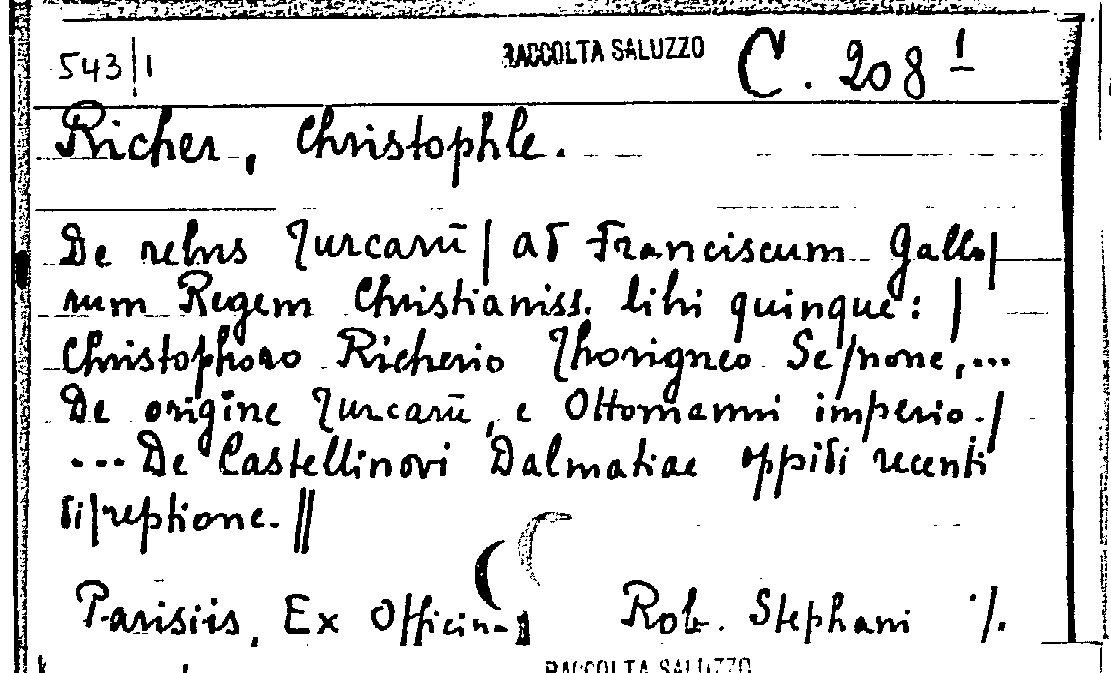 543|1 RACCOLTA SALUZZO C. 208 1
Richer, Christophle.
De rebus Turcarū | ad Franciscum Gallo|
rum Regem Christianiss. libri quinque: |
Christophoro Richerio Thorigneo Se/none,...
De origine Turcarū, e Ottomanni imperio. |
... De Castellinovi Dalmatiae oppidi recenti
di|reptione. ||
Parisiis, Ex Officina Rob. Stephani ./.
RACCOLTA SALUZZO